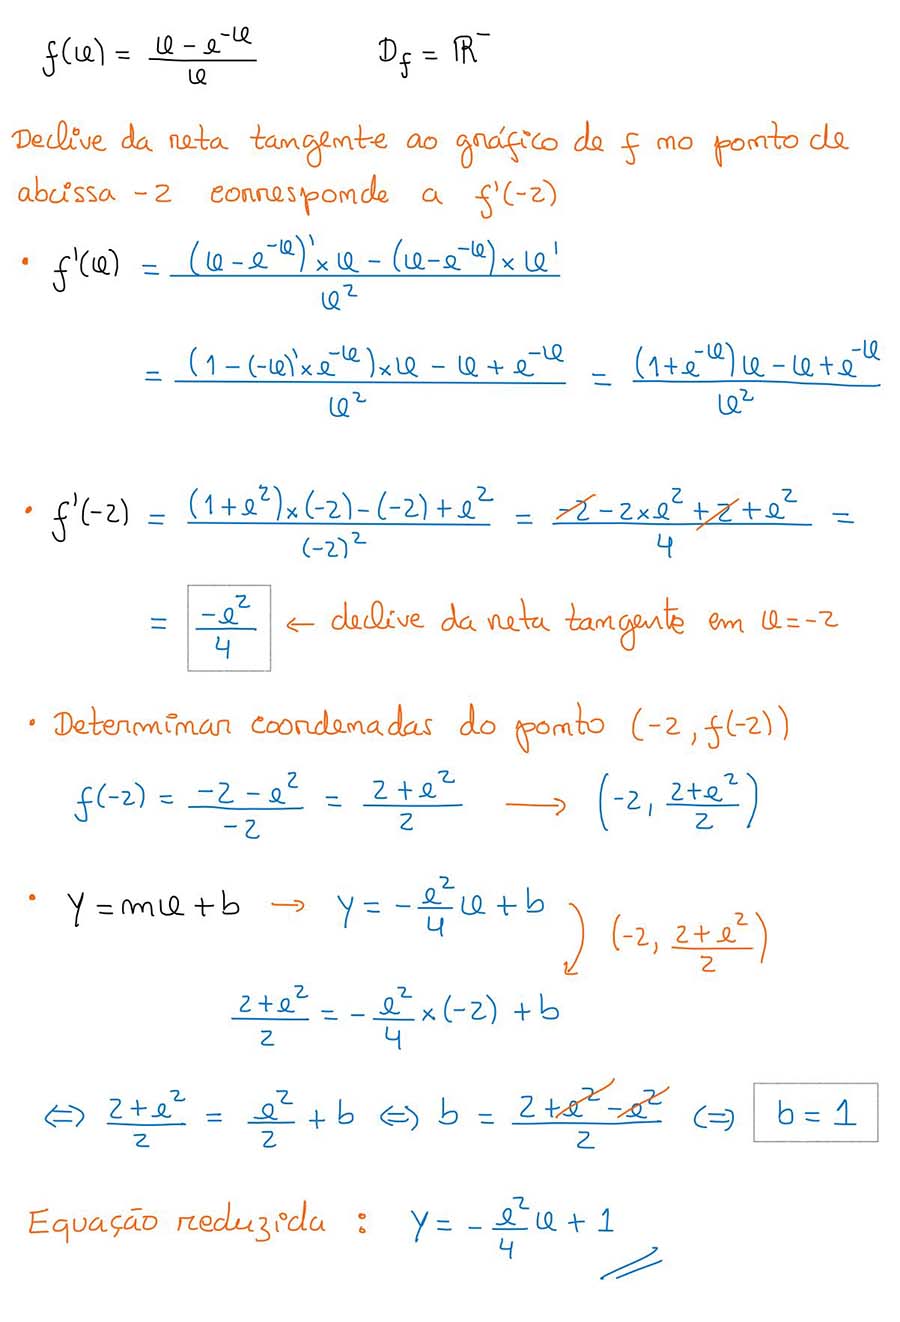 f(x) = (x - e^{-x})/x    D_f = ℝ⁻
Declive da reta tangente ao gráfico de f no ponto de
abcissa -2 corresponde a f'(-2)
• f'(x) = ((x - e^{-x})' × x - (x - e^{-x}) × x')/x²
= ((1 - (-x)' × e^{-x}) × x - x + e^{-x})/x² = ((1 + e^{-x})x - x + e^{-x})/x²
• f'(-2) = ((1 + e²) × (-2) - (-2) + e²)/(-2)² = (-2 - 2 × e² + 2 + e²)/4 =
= -e²/4 ← declive da reta tangente em x = -2
• Determinar coordenadas do ponto (-2, f(-2))
f(-2) = (-2 - e²)/-2 = (2 + e²)/2 → (-2, (2 + e²)/2)
• y = mx + b → y = -e²/4 x + b (-2, (2 + e²)/2)
(2 + e²)/2 = -e²/4 × (-2) + b
⇔ (2 + e²)/2 = e²/2 + b ⇔ b = (2 + e² - e²)/2 ⇔ b = 1
Equação reduzida : y = -e²/4 x + 1